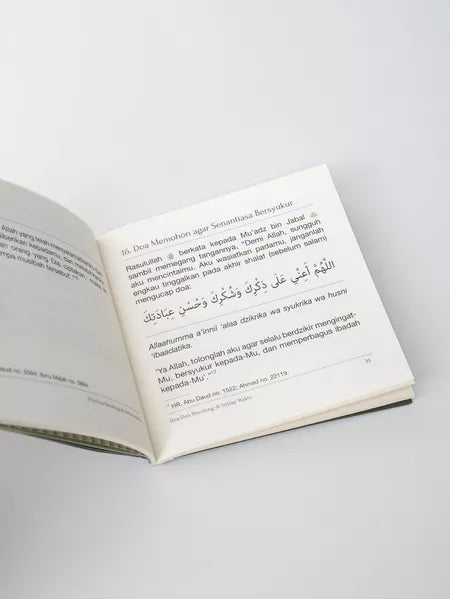 Allah yang telah menyelamatkan
diberikan kepadamu, dan
orang yang Dia ciptakan, maka
mpa musibah tersebut."
no. 3394, Ibnu Majah no. 3884.
16. Doa Memohon agar Senantiasa Bersyukur
Rasulullah ﷺ berkata kepada Mu'adz bin Jabal ﷺ
sambil memegang tangannya, "Demi Allah, sungguh
aku mencintaimu. Aku wasiatkan padamu, janganlah
engkau tinggalkan pada akhir shalat (sebelum salam)
mengucap doa:
اللَّهُمَّ أَعِنِّي عَلَى ذِكْرِكَ وَشُكْرِكَ وَحُسْنِ عِبَادَتِكَ
Allaahumma a'innii 'alaa dzikrika wa syukrika wa husni
'ibaadatika.
'Ya Allah, tolonglah aku agar selalu berdzikir mengingat-
Mu, bersyukur kepada-Mu, dan memperbagus ibadah
kepada-Mu'."17
17 HR. Abu Daud no. 1522; Ahmad no. 22119.
Doa-Doa Penolong di Setiap Waktu
35